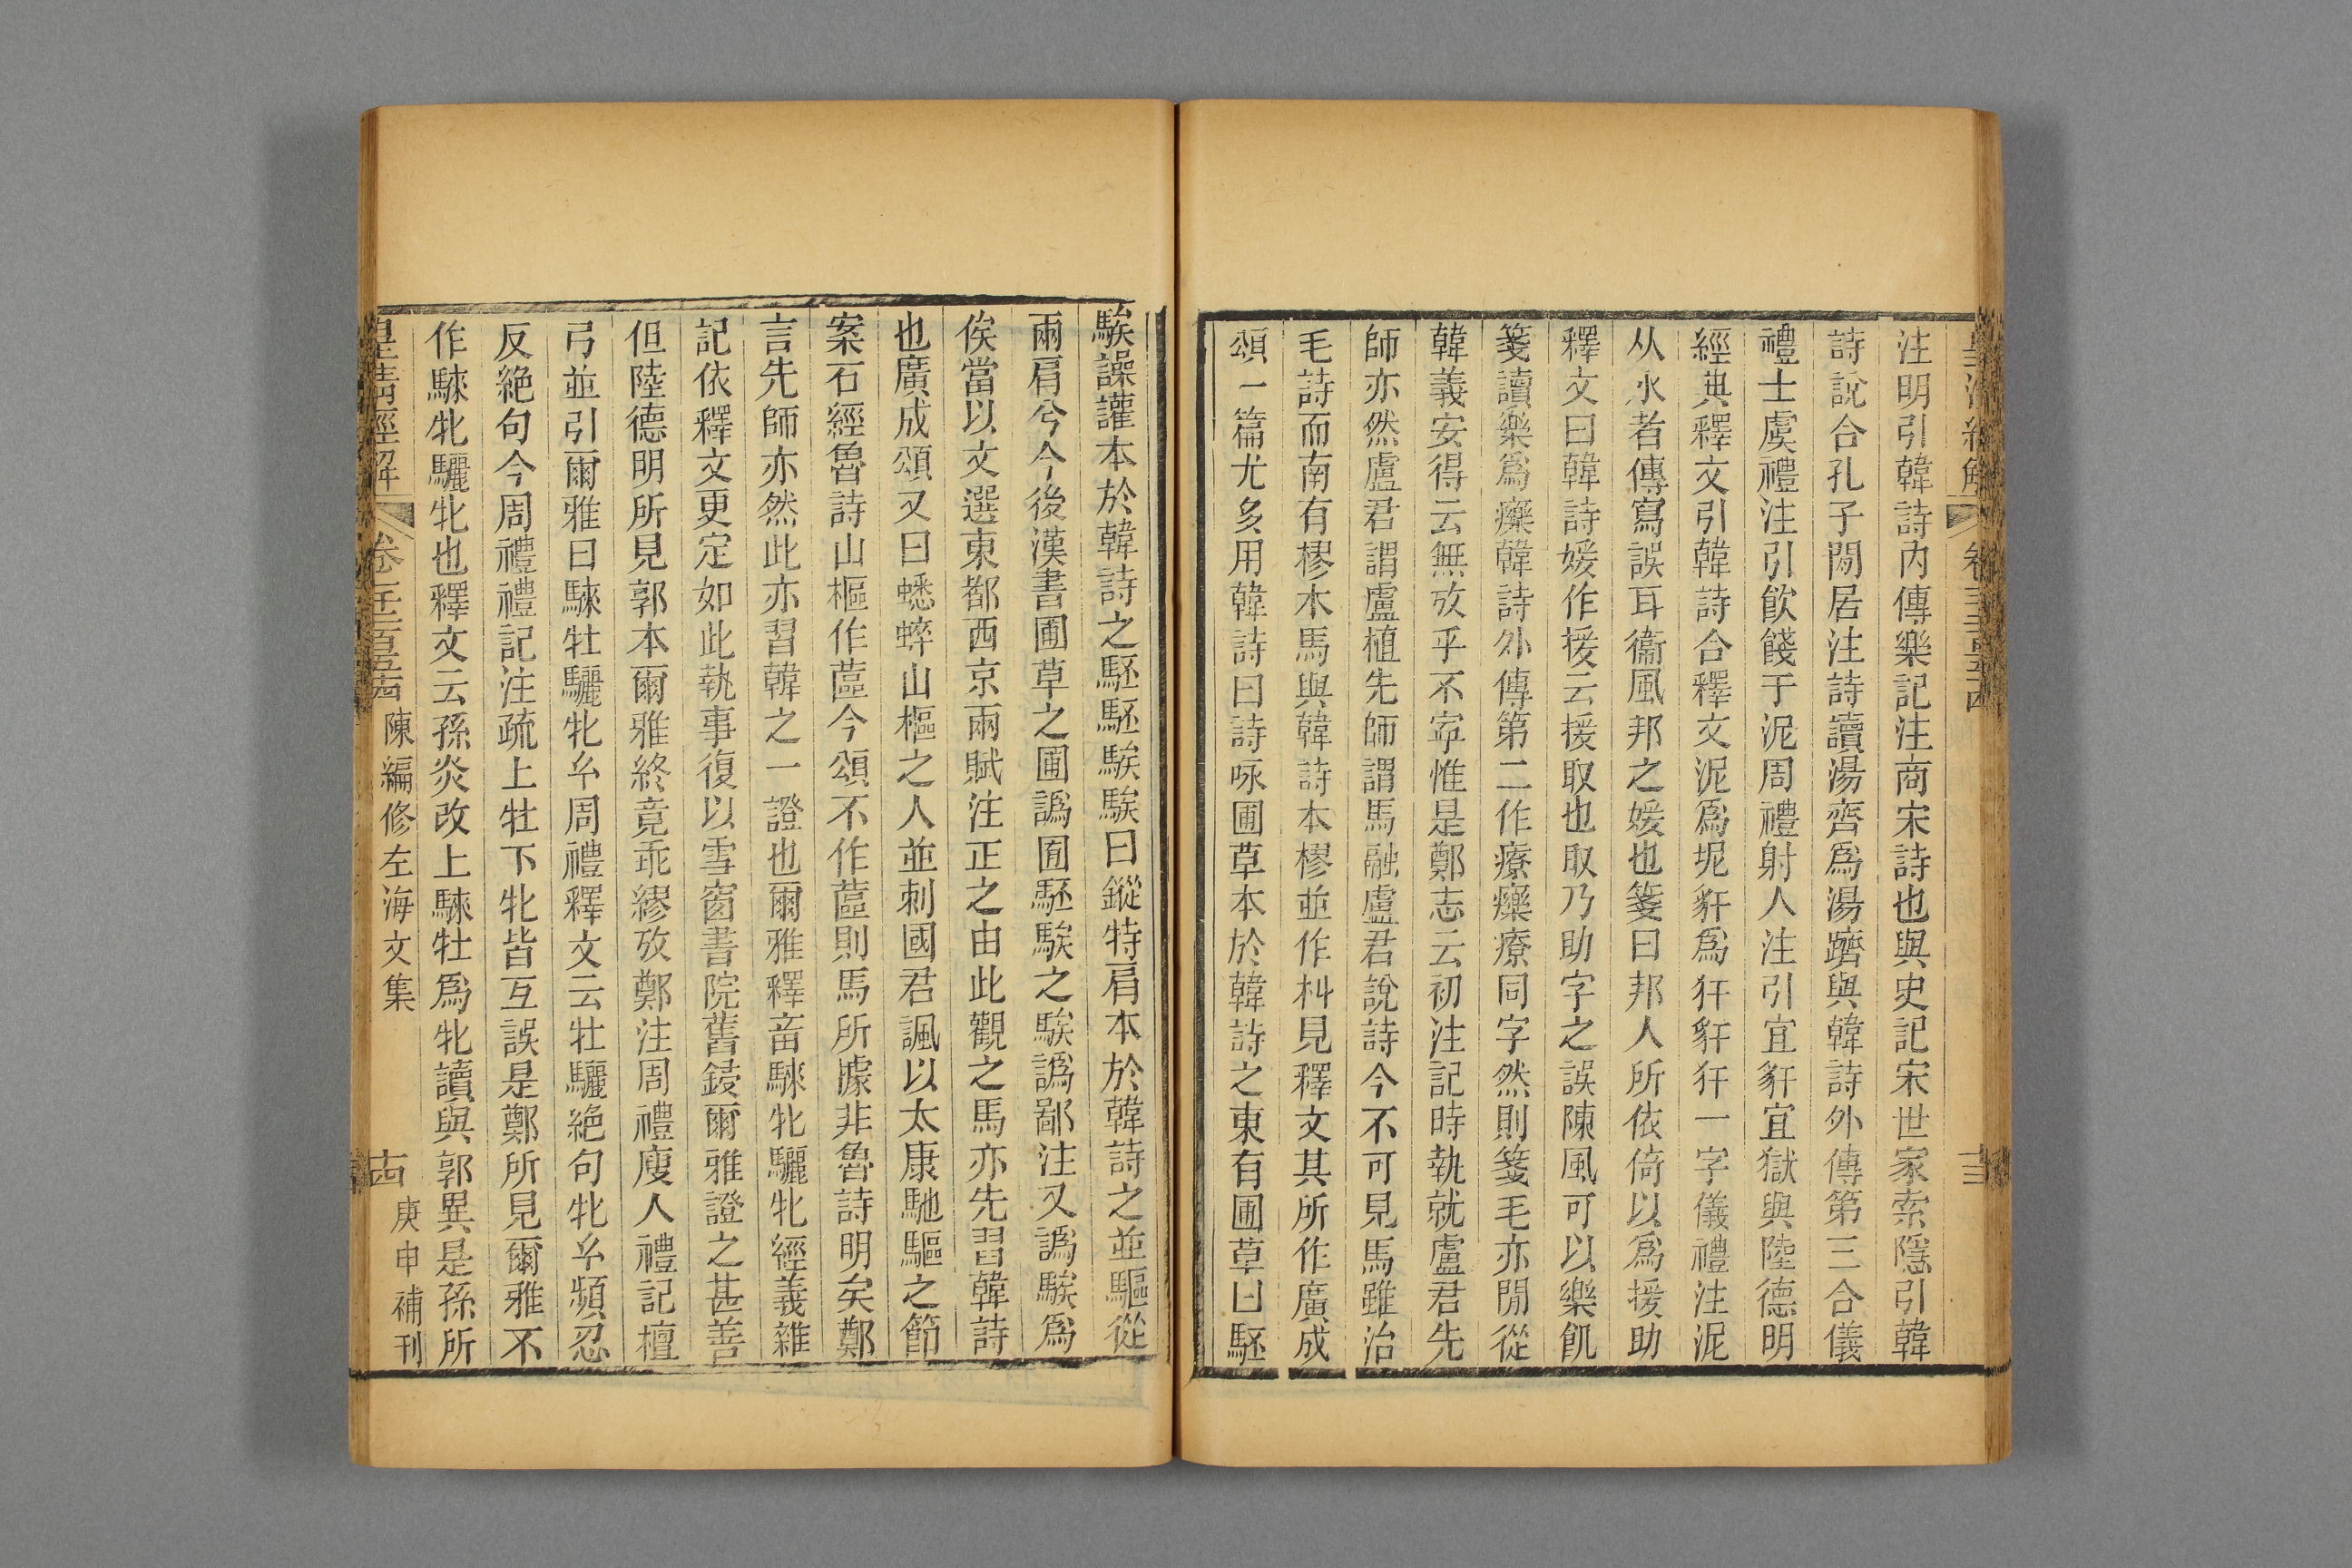 皇清經解
卷千二百五十四
十三
注明引韓詩內傳樂記注商宋詩也與史記宋世家索隱引韓
詩說合孔子閒居注詩讀湯齊爲湯躋與韓詩外傳第三合儀
禮士虞禮注引飮餞于泥周禮射人注引宜豻宜獄與陸德明
經典釋文引韓詩合釋文泥爲坭豻爲犴豻犴一字儀禮注泥
从水者傳寫誤耳衞風邦之媛也箋曰邦人所依倚以爲援助
釋文曰韓詩媛作援云援取也取乃助字之誤陳風可以樂飢
箋讀樂爲㿋韓詩外傳第二作療㿋療同字然則箋毛亦閒從
韓義安得云無攷乎不寍惟是鄭志云初注記時執就盧君先
師亦然盧君謂盧植先師謂馬融盧君說詩今不可見馬雖治
毛詩而南有樛木馬與韓詩本樛並作朻見釋文其所作廣成
頌一篇尤多用韓詩曰詩咏圃草本於韓詩之東有圃草曰駓
騃譟讙本於韓詩之駓駓騃騃曰鏦特肩本於韓詩之並驅從
兩肩兮今後漢書圃草之圃譌囿駓騃之騃譌鄙注又譌騃爲
俟當以文選東都西京兩賦注正之由此觀之馬亦先習韓詩
也廣成頌又曰蟋蟀山樞之人並刺國君諷以太康馳驅之節
案石經魯詩山樞作蓲今頌不作蓲則馬所據非魯詩明矣鄭
言先師亦然此亦習韓之一證也爾雅釋畜騋牝驪牝經義雜
記依釋文更定如此執事復以雪窗書院舊鋟爾雅證之甚善
但陸德明所見郭本爾雅終竟乖繆攷鄭注周禮廋人禮記檀
弓並引爾雅曰騋牡驪牝𢆯周禮釋文云牡驪絕句牝𢆯頻忍
反絕句今周禮禮記注疏上牡下牝皆互誤是鄭所見爾雅不
作騋牝驪牝也釋文云孫炎改上騋牡爲牝讀與郭異是孫所
皇清經解
卷千二百五十四
陳編修左海文集
十四
庚申補刊